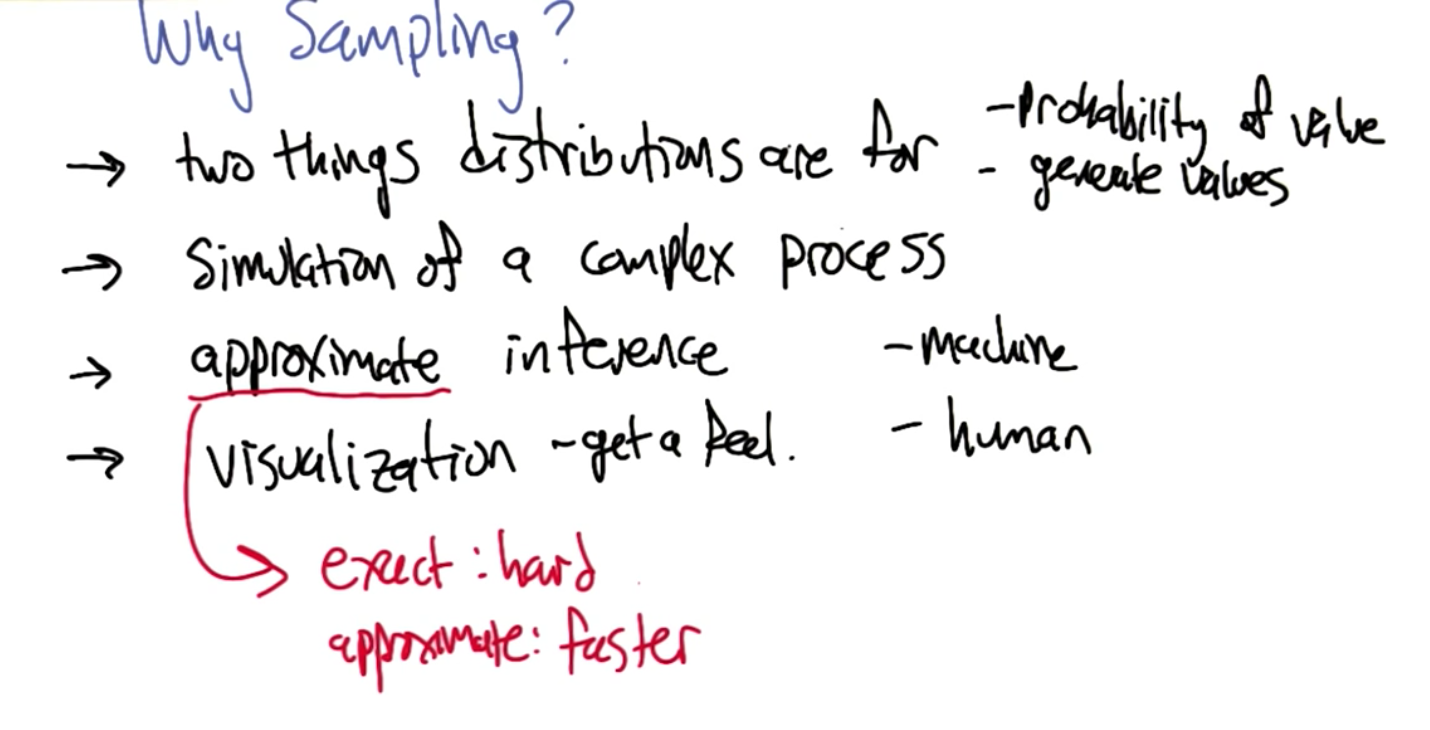 Why Sampling?
→ two things distributions are for - Probability of value
- generate values
→ Simulation of a complex process
→ approximate inference - machine
→ visualization - get a feel. - human
exact : hard
approximate: faster